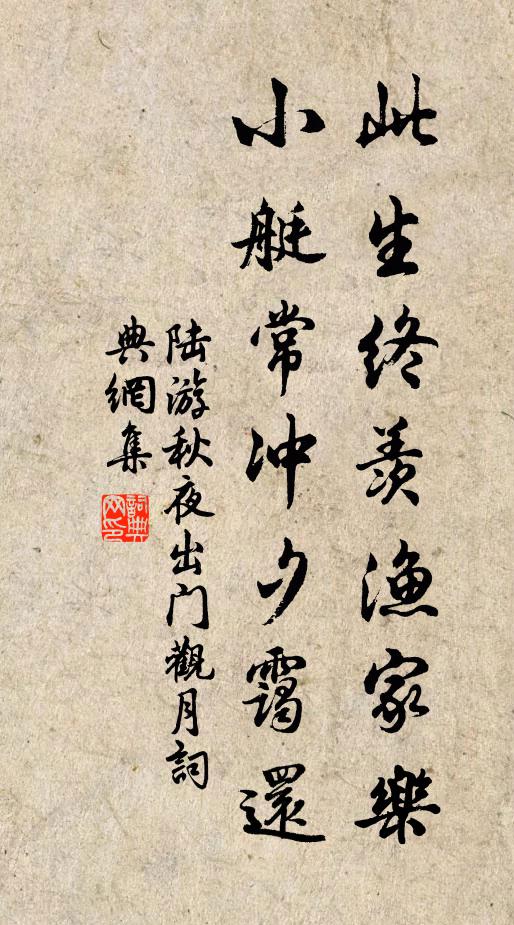 此生終羨漁家樂
小艇常沖夕靄還
陆游秋夜出门觀月詞
典網集
詞典
网印